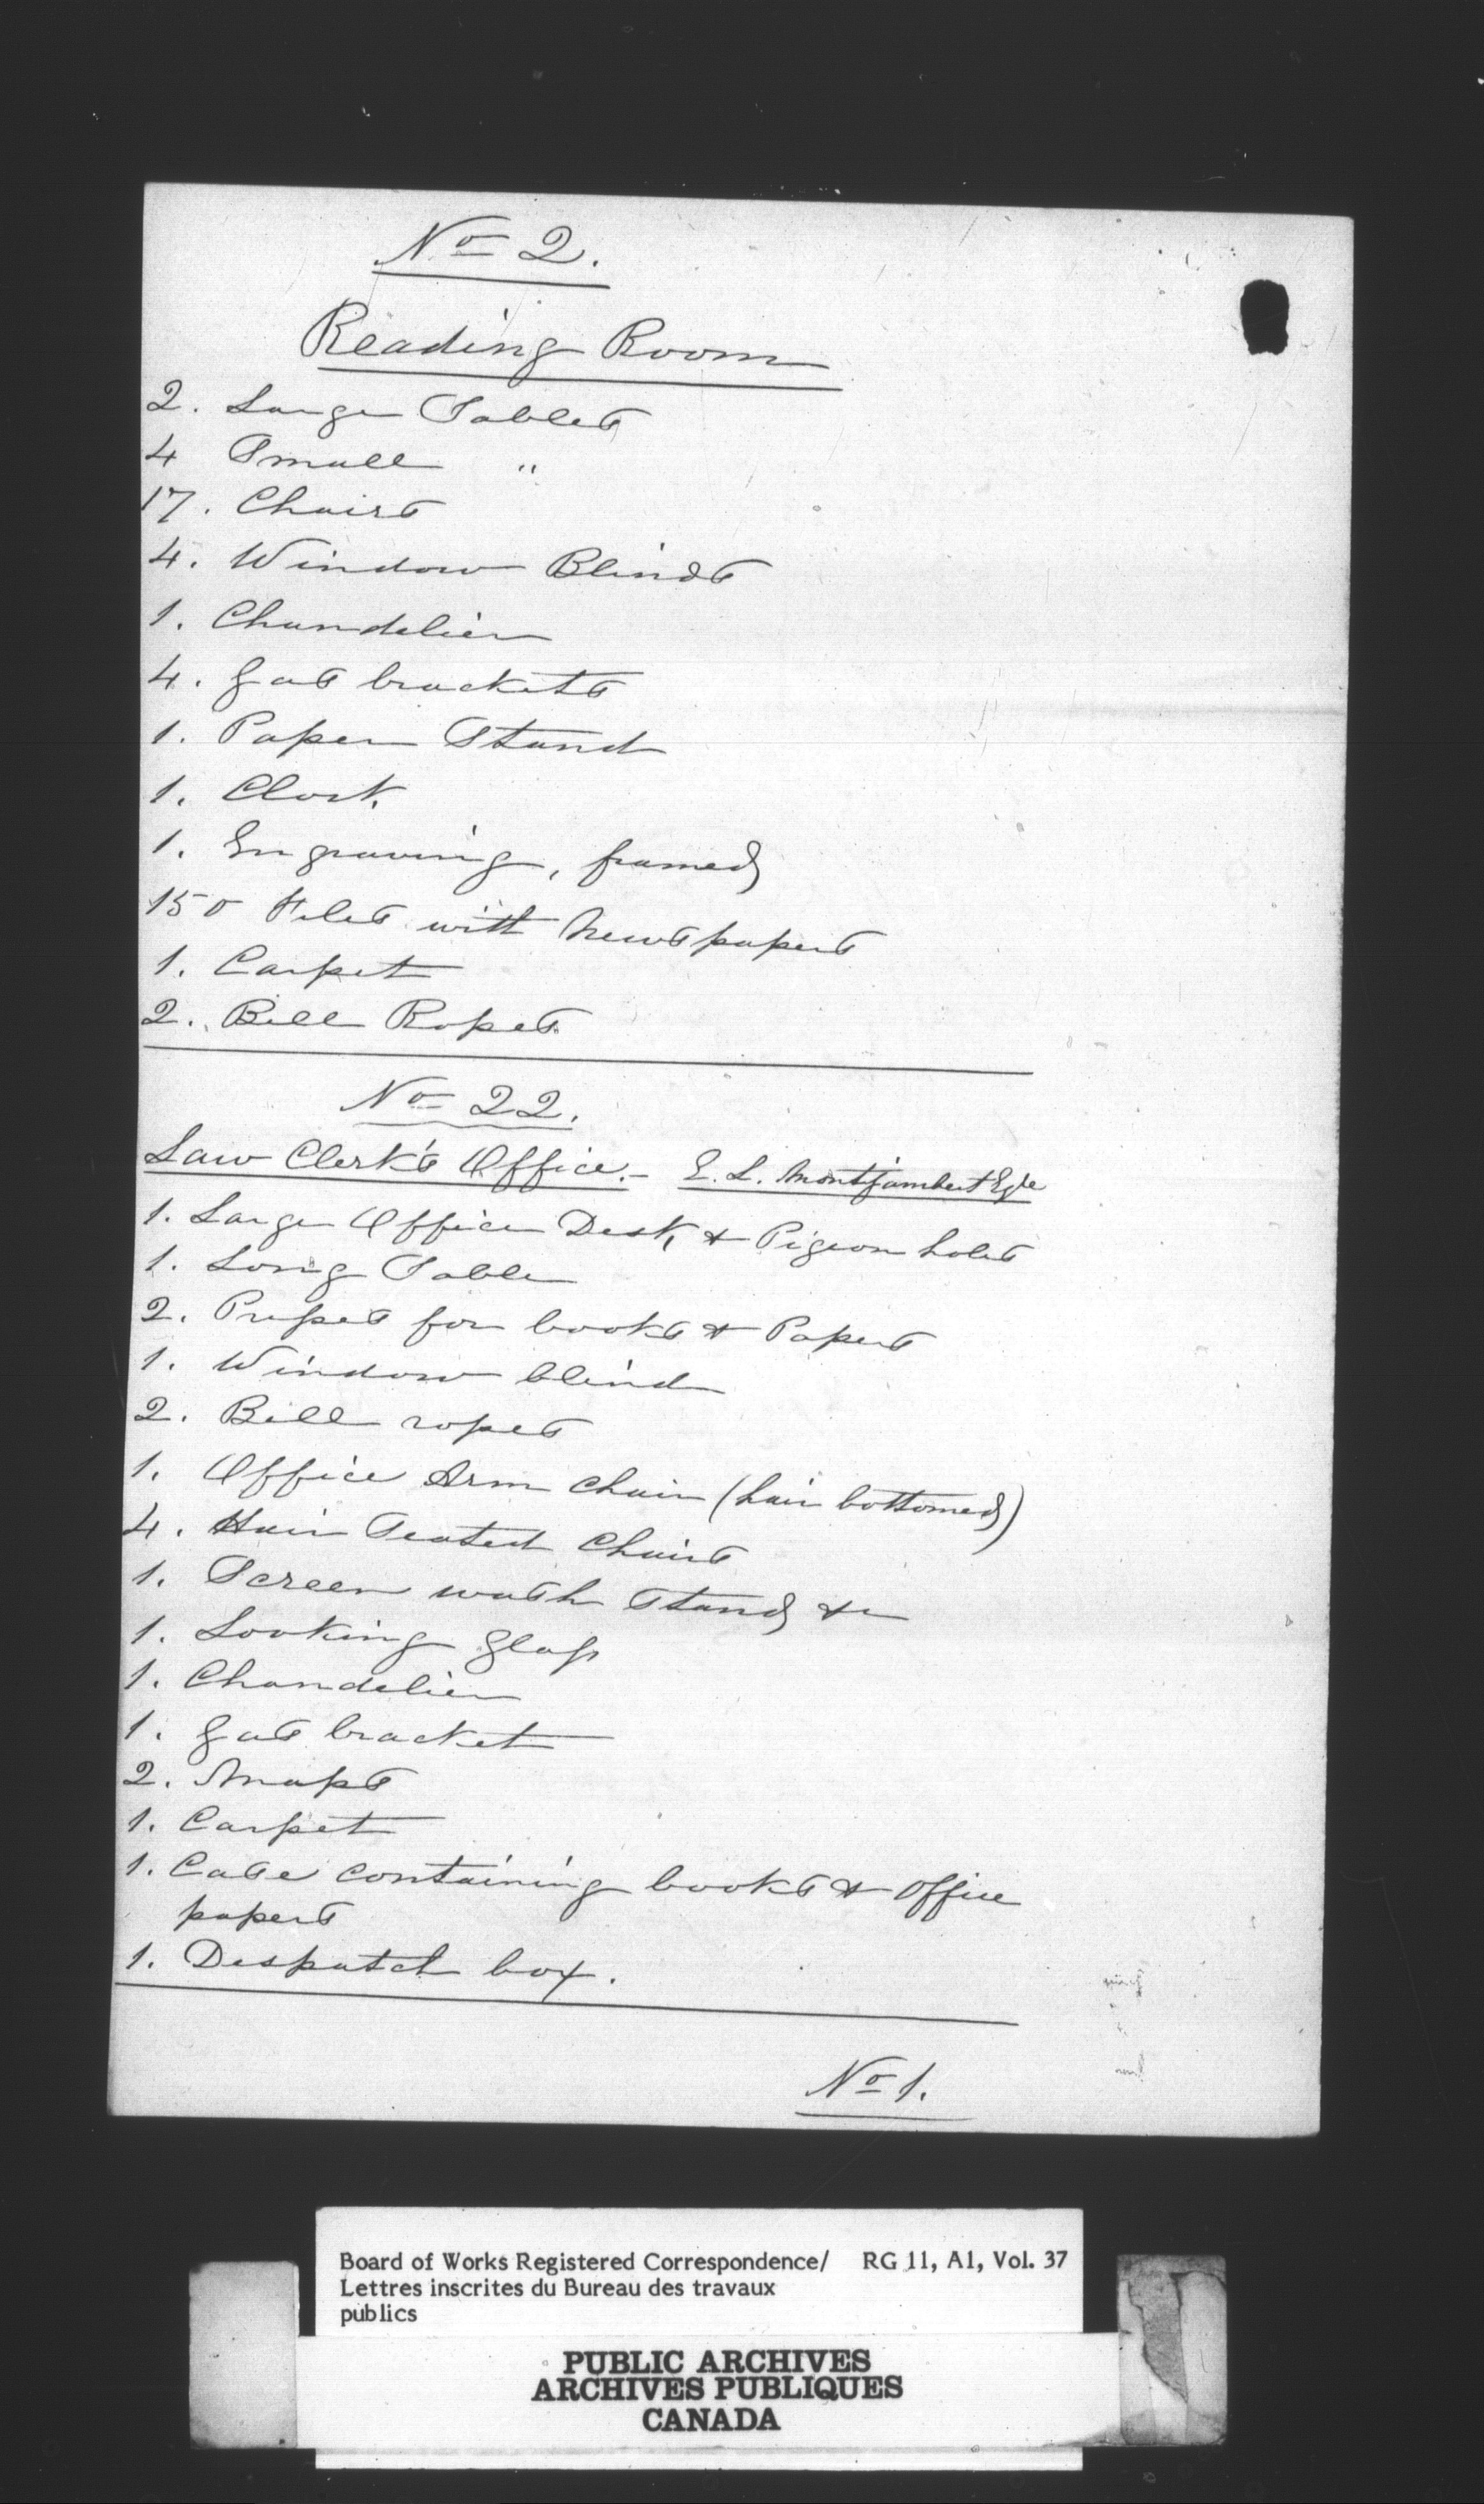 No 2.
Reading Room
2. Large Tables
4 Small "
17. Chairs
4. Window Blinds
1. Chandelier
4. Gas brackets
1. Paper Stand
1. Clock.
1. Engraving, framed
150 Files with Newspapers
1. Carpet
2. Bell Ropes.
No 22.
Law Clerk's Office.- E. L. Montizambert Esqre
1. Large Office Desk, & Pigeon holes
1. Long Table
2. Presses for books & Papers
1. Window blind
2. Bell ropes
1. Office Arm chair (hair bottomed)
4. Hair Seated Chairs
1. Screen wash Stand, &c
1. Looking Glass
1. Chandelier
1. Gas bracket
2. Maps
1. Carpet
1. Case containing books & office
papers
1. Despatch box.
No 1.
Board of Works Registered Correspondence/ RG 11, A1, Vol. 37
Lettres inscrites du Bureau des travaux
publics
PUBLIC ARCHIVES
ARCHIVES PUBLIQUES
CANADA